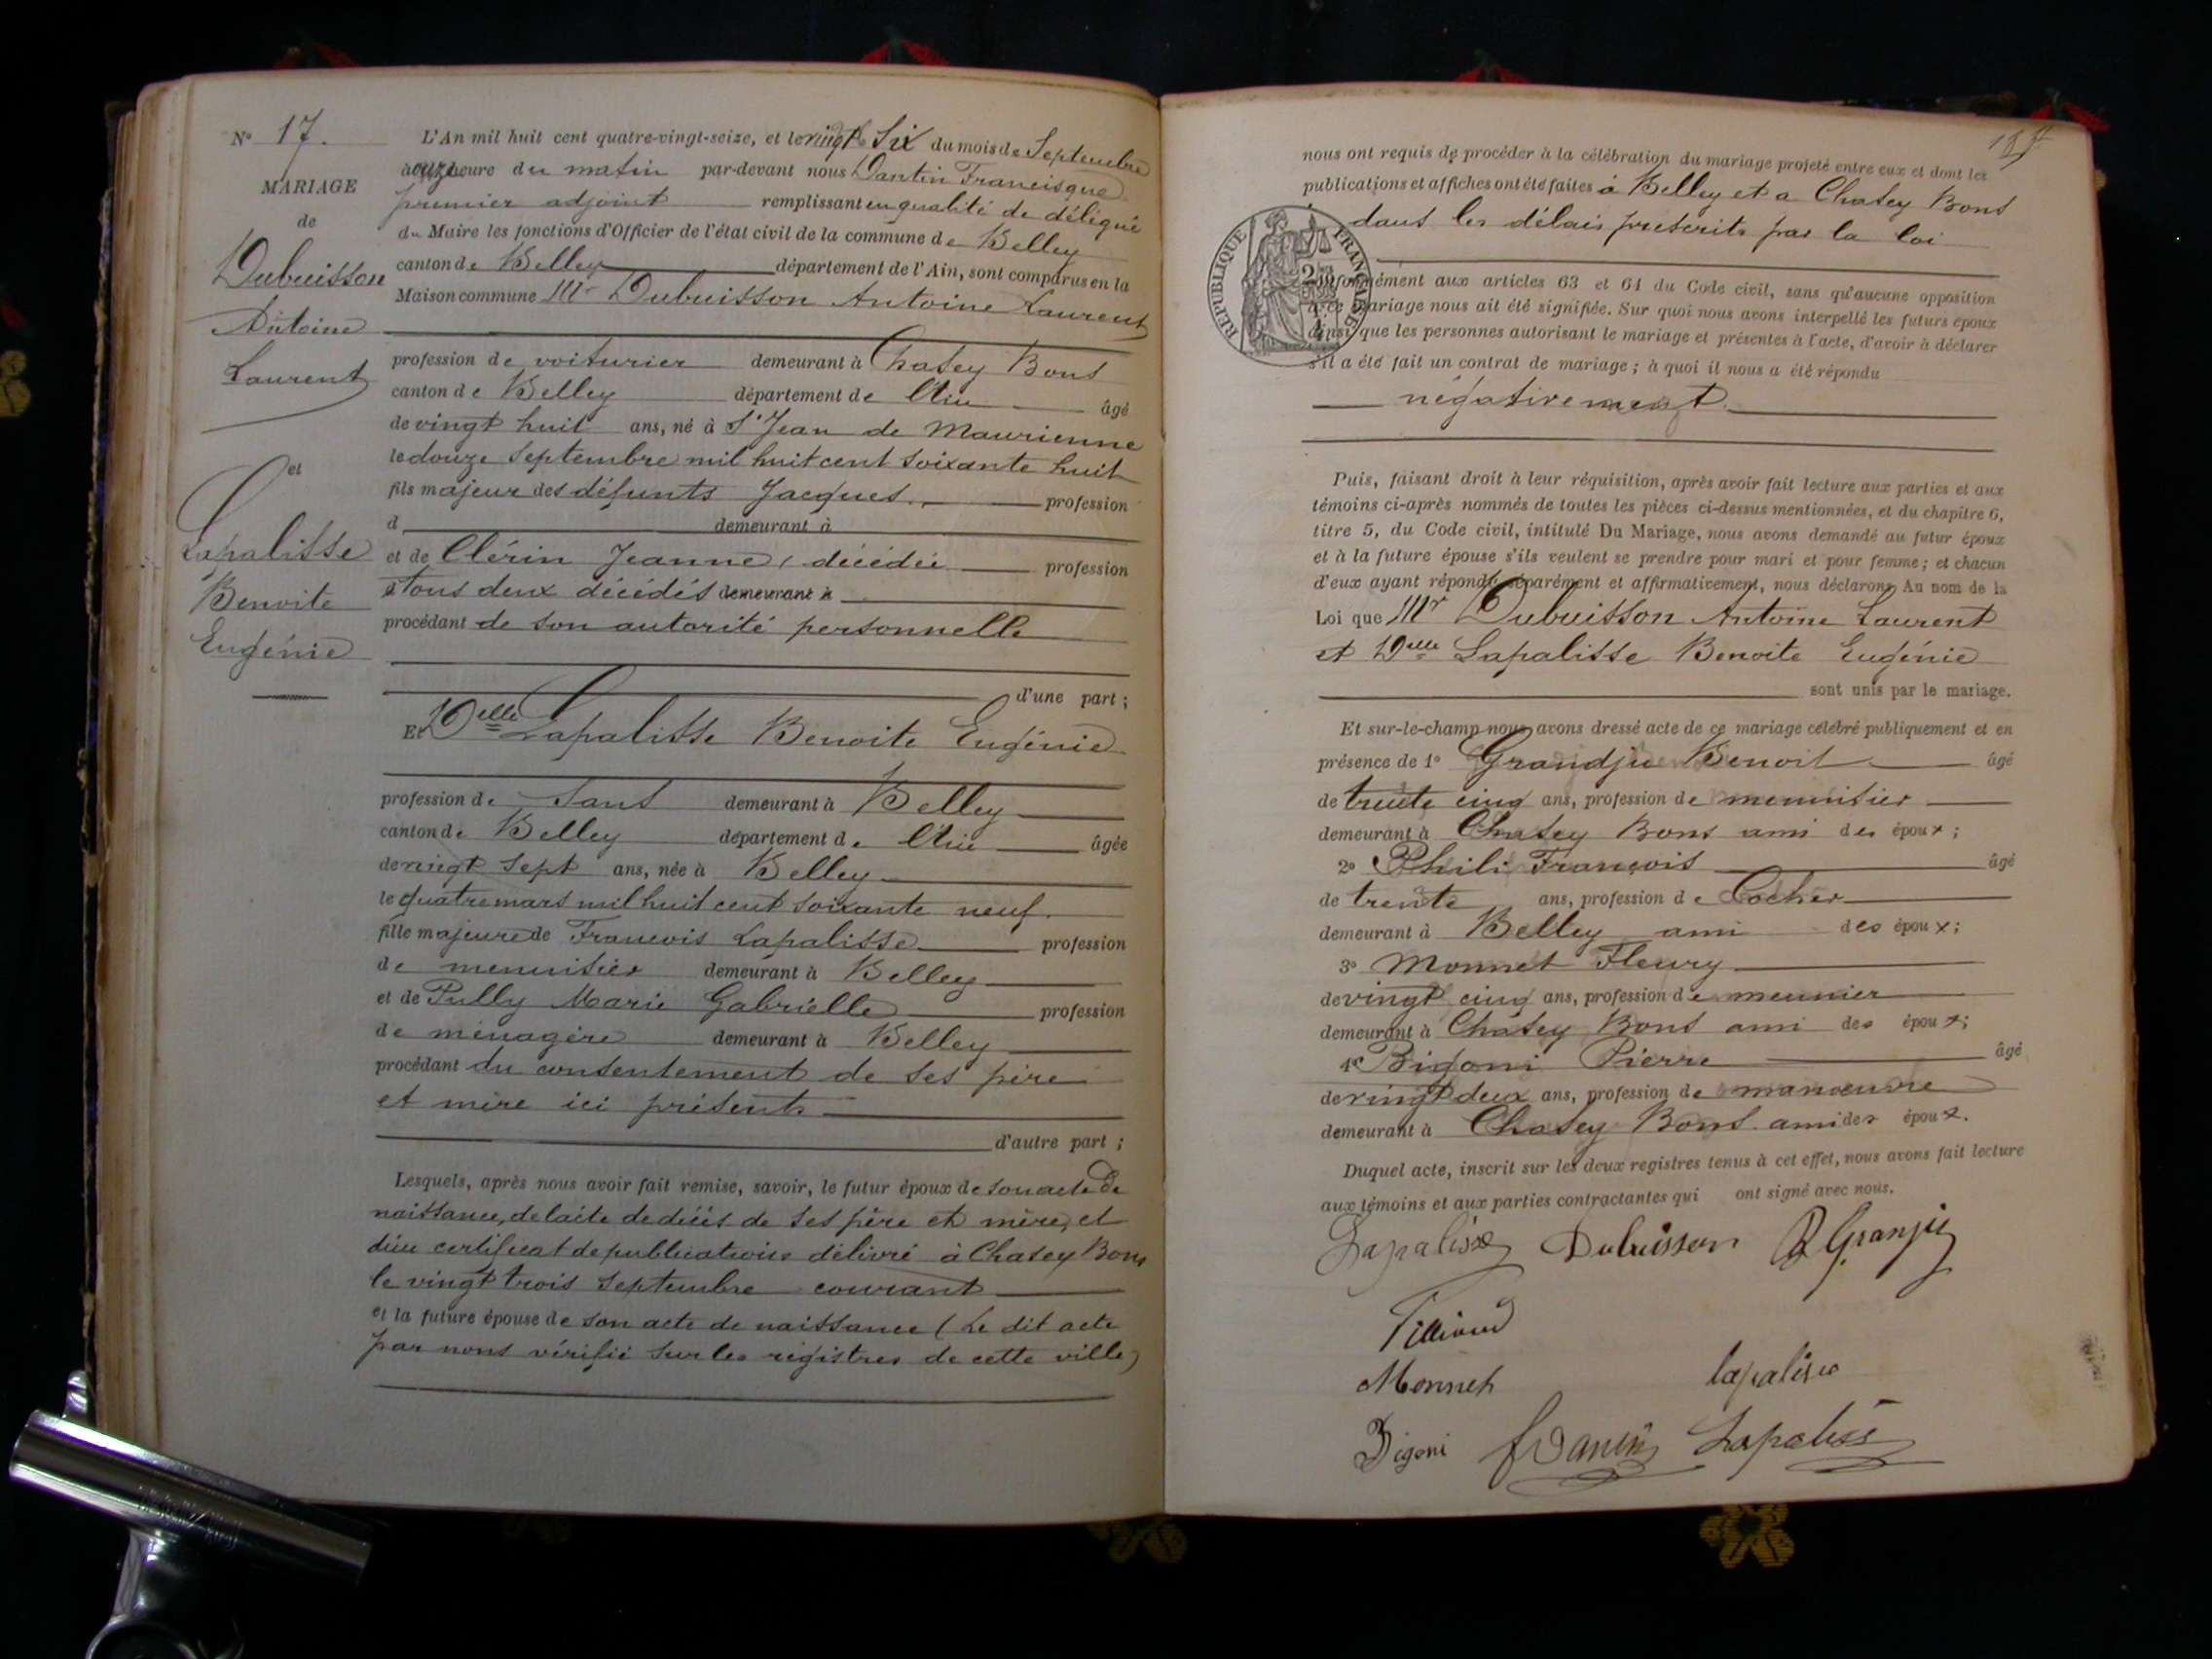 N° 17.
MARIAGE
de
Dubuisson
Antoine
Laurent
et
Lapalisse
Benoite
Eugénie
L'An mil huit cent quatre-vingt-seize, et le vingt Six du mois de Septembre
à onze heure du matin par-devant nous Dantin Francisque
premier adjoint remplissant en qualité de délégué
du Maire les fonctions d'Officier de l'état civil de la commune de Belley
canton de Belley département de l'Ain, sont comparus en la
Maison commune Mr Dubuisson Antoine Laurent
profession de voiturier demeurant à Chazey Bons
canton de Belley département de l'Ain âgé
de vingt huit ans, né à St Jean de Maurienne
le douze Septembre mil huit cent soixante huit
fils majeur des défunts Jacques profession
d demeurant à
et de Clérin Jeanne, décédée profession
d tous deux décédés demeurant à
procédant de son autorité personnelle
d'une part ;
Et Delle Lapalisse Benoite Eugénie
profession de Sans demeurant à Belley
canton de Belley département de l'Ain âgée
de vingt sept ans, née à Belley
le quatre mars mil huit cent soixante neuf.
fille majeure de Francois Lapalisse profession
de menuisier demeurant à Belley
et de Pully Marie Gabrielle profession
de ménagère demeurant à Belley
procédant du consentement de ses père
et mère ici présents
d'autre part ;
Lesquels, après nous avoir fait remise, savoir, le futur époux de son acte de
naissance, de l'acte de décès de ses père et mère, et
d'un certificat de publications délivré à Chazey Bons
le vingt trois Septembre courant
et la future épouse de son acte de naissance (Le dit acte
par nous vérifié sur les registres de cette ville)
nous ont requis de procéder à la célébration du mariage projeté entre eux et dont les
publications et affiches ont été faites à Belley et a Chazey Bons
dans les délais prescrits par la loi
RÉPUBLIQUE FRANÇAISE
conformément aux articles 63 et 64 du Code civil, sans qu'aucune opposition
à ce mariage nous ait été signifiée. Sur quoi nous avons interpellé les futurs époux
ainsi que les personnes autorisant le mariage et présentes à l'acte, d'avoir à déclarer
s'il a été fait un contrat de mariage ; à quoi il nous a été répondu
négativement.
Puis, faisant droit à leur réquisition, après avoir fait lecture aux parties et aux
témoins ci-après nommés de toutes les pièces ci-dessus mentionnées, et du chapitre 6,
titre 5, du Code civil, intitulé Du Mariage, nous avons demandé au futur époux
et à la future épouse s'ils veulent se prendre pour mari et pour femme ; et chacun
d'eux ayant répondu séparément et affirmativement, nous déclarons Au nom de la
Loi que Mr Dubuisson Antoine Laurent
et Delle Lapalisse Benoite Eugénie
sont unis par le mariage.
Et sur-le-champ nous avons dressé acte de ce mariage célébré publiquement et en
présence de 1° Grandjie Benoit âgé
de trente cinq ans, profession de menuisier
demeurant à Chazey Bons ami des époux ;
2° Phili François âgé
de trente ans, profession de Cocher
demeurant à Belley ami des époux ;
3° Monnet Fleury
de vingt cinq ans, profession de meunier
demeurant à Chazey Bons ami des époux ;
4° Bigoni Pierre âgé
de vingt deux ans, profession de manœuvre
demeurant à Chazey Bons ami des époux.
Duquel acte, inscrit sur les deux registres tenus à cet effet, nous avons fait lecture
aux témoins et aux parties contractantes qui ont signé avec nous.
Lapalisse Dubuisson B Granjie
Monnet lapalisse
Bigoni Lapalisse